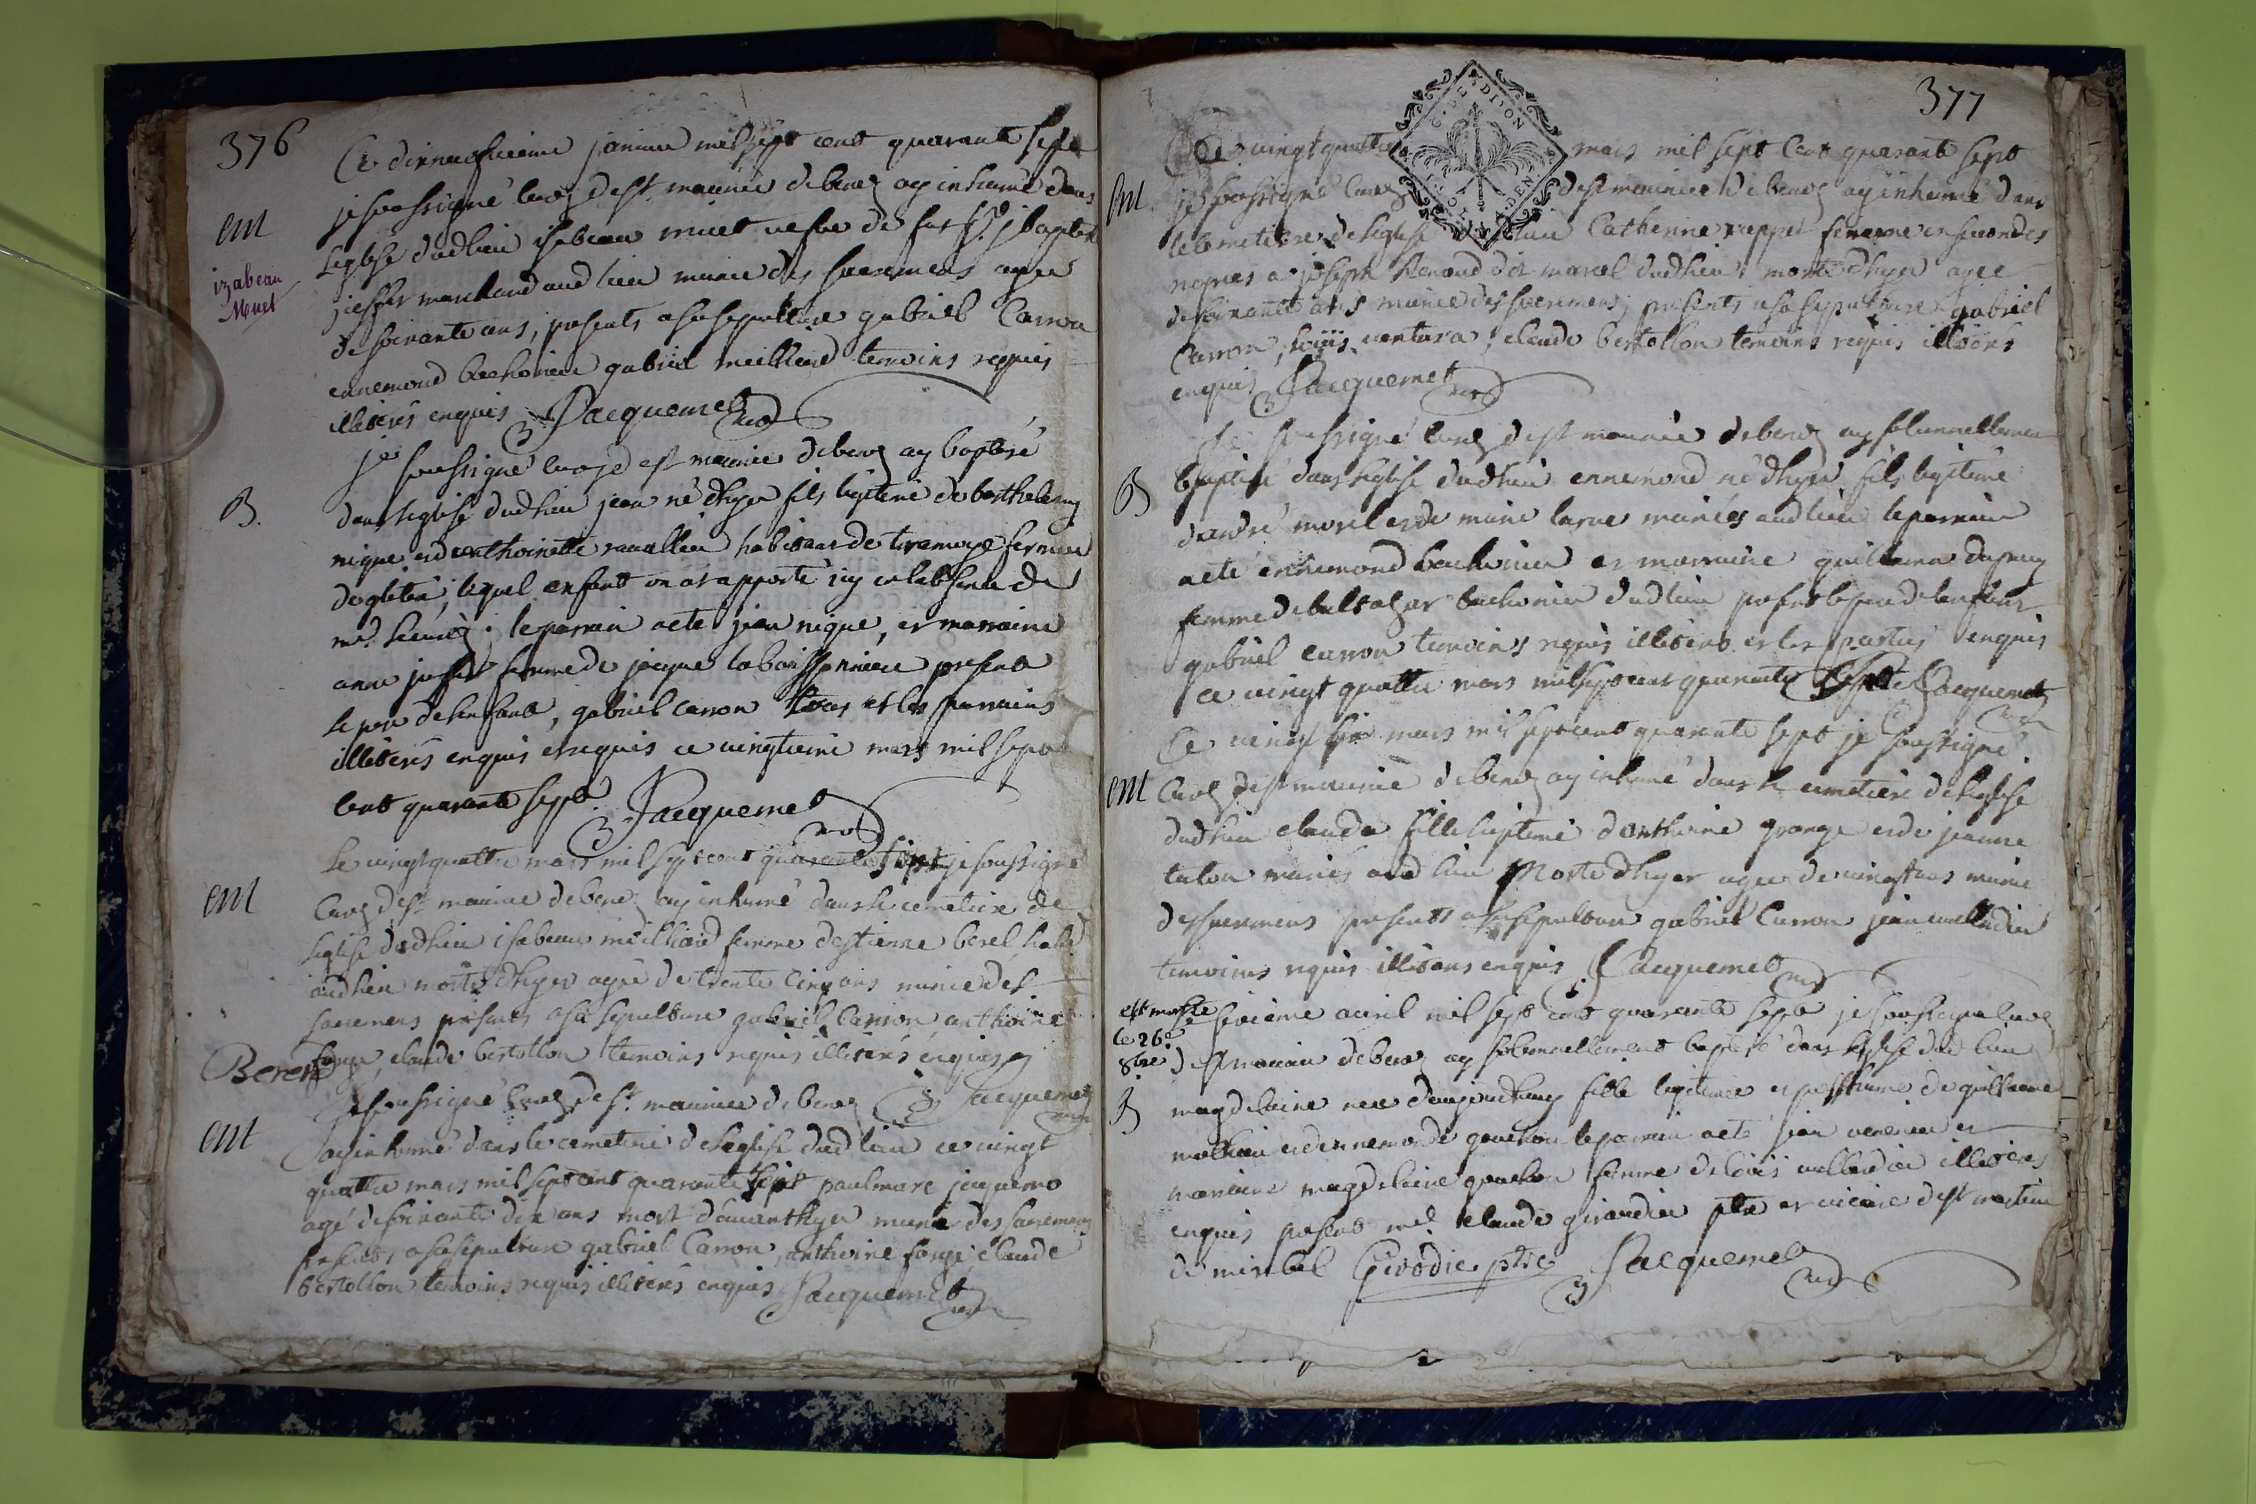 376
Ce dixneufvieme janvier mil sept cent quarante sept
je soussigné curé de st maurice de beno ay inhumé dans
l'eglise dudlieu isabeau muet vefve de fut sr j baptiste
marchand aud lieu munie des sacremens agee
de soixante ans, presents a sa sepulture gabriel Carron
ennemond bachonier gabriel meilliard temoins requis
illiterés enquis Jacquemet curé
em
izabeau
Muet
je soussigné curé de st maurice de beno ay baptisé
B.
dans leglise dudlieu jean né d'hyer fils legitime de barthelemy
nique et d'anthoinette ravallier habitans de tramoye fermier
de lequel enfant on at apporté icy en labsence de
mr ; le parrain a eté jean nique, et marraine
anne femme de jacque laboissonniere present
le pere de lenfant, gabriel carron et les parrains
illiterés enquis et requis ce vingtieme mars mil sept
cent quarante sept. Jacquemet curé
Le vingt quattre mars mil sept cent quarante sept je soussigné
em
curé de st maurice de beno ay inhumé dans le cemetiere de
leglise dudlieu isabeau meilliard femme d'estienne berel
audlieu morte d'hyer agée de trente cinq ans munie des
sacremens presents a sa sepulture gabriel Carron anthoine
forge, claude bertollon temoins requis illiterés enquis
Berel
Je soussigné curé de st maurice de beno Jacquemet curé
em
ay inhumé dans le cemetiere de leglise dud lieu ce vingt
quattre mars mil sept cent quarante sept paul marc jaquemo
agé de soixante dix ans mort d'avanthyer munie des sacremens
presents a sa sepulture gabriel Carron, anthoine forge, claude
bertollon temoins requis illiterés enquis Jacquemet curé
377
G. DE DIJON
Ce vingt quattre mars mil sept cent quarante sept
em
je soussigné curé de st maurice de beno ay inhumé dans
le cemetiere de leglise dudlieu Catherine rappet femme en secondes
nopces a joseph Renaud dit marcel dudlieu morte d'hyer agee
de soixante ans munie des sacremens, presents a sa sepulture gabriel
Carron, louis ventura, claude bertollon temoins requis illiterés
enquis Jacquemet curé
Je soussigné curé de st maurice de beno ay solemnellement
B
baptisé dans leglise dudlieu ennemond né d'hyer fils legitime
d'andré morel et de marie larue mariés audlieu le parrain
a eté ennemond bachonier et marraine guillerma dupuy
femme de baltazar bachonier dudlieu present le pere de lenfant
gabriel carron temoins requis illiterés et les parties enquis
ce vingt quattre mars mil sept cent quarante sept Jacquemet curé
Ce vingt six mars mil sept cent quarante sept je soussigné
em
curé de st maurice de beno ay inhumé dans le cemetiere de leglise
dudlieu clauda fille legitime d'anthoine grange et de jeanne
talon mariés aud lieu Morte d'hyer agee de vingt ans munie
des sacremens presents a sa sepulture gabriel Carron jean
temoins requis illiterés enquis Jacquemet curé
est morte
le 26e
8bre
Ce sixieme avril mil sept cent quarante sept je soussigné curé
de st maurice de beno ay solemnellement baptisé dans leglise dud lieu
B
magdelaine nee d'aujourdhuy fille legitime et posthume de guillaume
mathieu et d'ennemonde gonchon le parrain a eté jean venerier et
marraine magdelaine gonchon femme de louis illiterés
enquis present mr claude giraudier ptre et vicaire de st martin
de miribel Girodie ptre Jacquemet curé